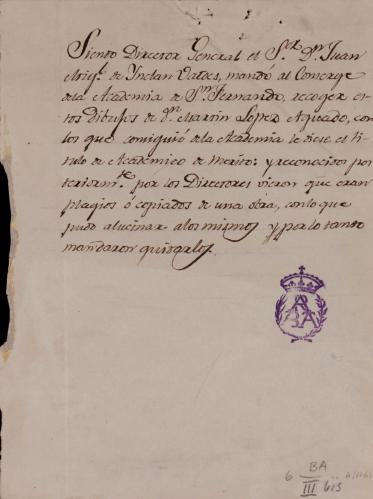 Siendo Director General el S.or D.n Juan
Mig.l de Inclan Valdes, mandó al Conserge
de la Academia de S.n Fernando, recoger es-
tos Dibujos de D.n Martin Lopez Aguado, con
los que consiguió de la Academia le diese el ti-
tulo de Académico de merito: y reconocidos pos-
teriorm.te por los Directores vieron que eran
plagios ó copiados de una obra, con lo que
pudo alucinar a los mismos y por lo tanto
mandaron quitarlos.
BA
6 III 613